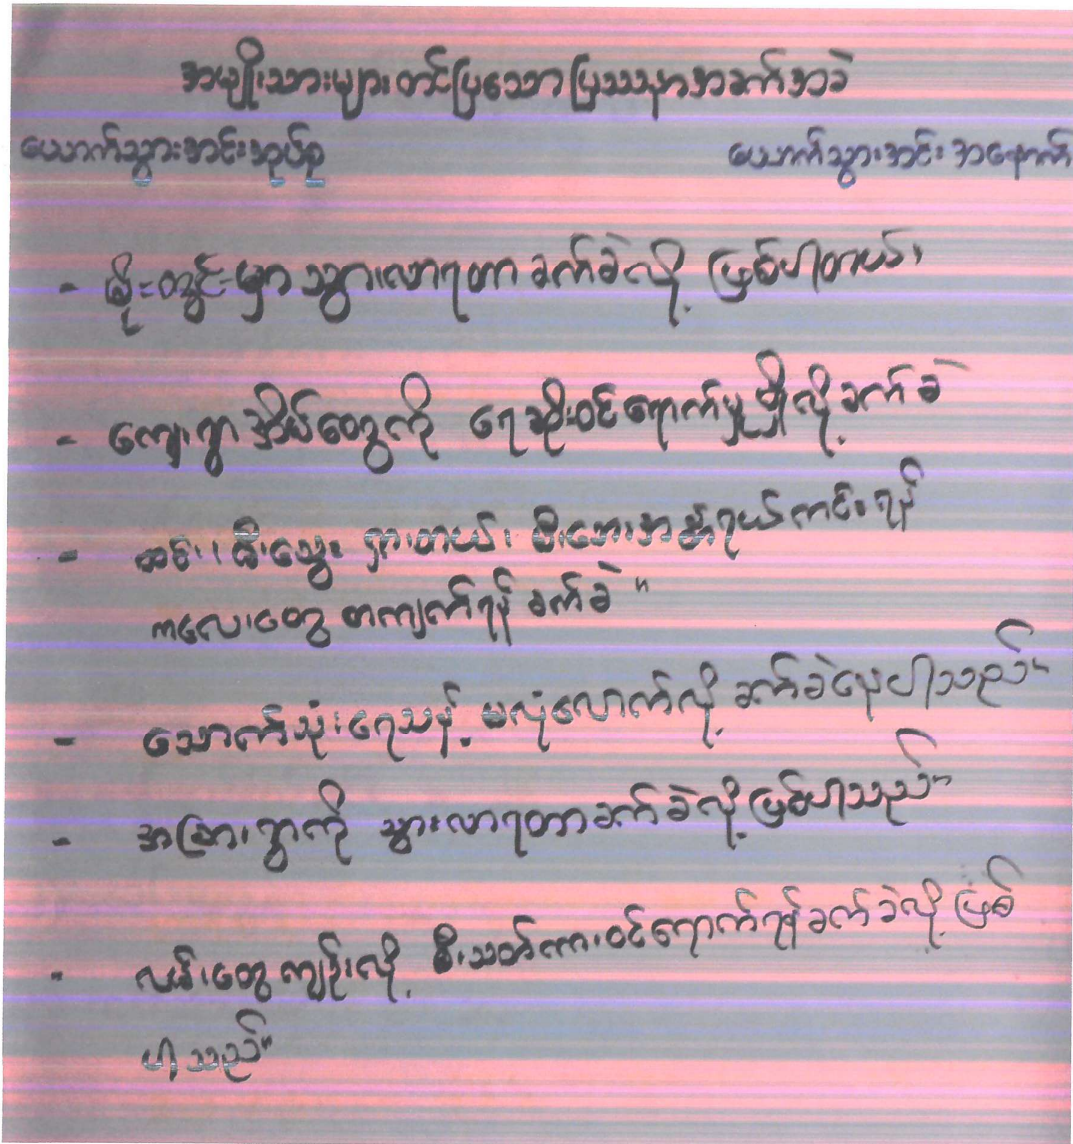 အမျိုးသားများ တင်ပြသော ပြဿနာအခက်အခဲ
ယောက်သွားအင်းအုပ်စု ယောက်သွားအင်း အနောက်
- မိုးတွင်းမှာ သွားလာရတာ ခက်ခဲလို့ ဖြစ်ပါတယ်၊
- ကျေးရွာအိမ်တွေကို ရေဆိုးဝင်ရောက်မှုရှိလို့ ခက်ခဲ
- ထင်း၊ မီးသွေး ရှားတယ်၊ မီးဘေးအန္တရာယ်ကင်းရန်
ကလေးတွေ တကျက်ရန် ခက်ခဲ။
- သောက်သုံးရေသန့် မလုံလောက်လို့ ခက်ခဲနေပါသည်။
- အခြားရွာကို သွားလာရတာခက်ခဲလို့ ဖြစ်ပါသည်။
- လမ်းတွေ ကျဉ်းလို့ မီးသတ်ကားဝင်ရောက်ရန်ခက်ခဲလို့ ဖြစ်
ပါသည်။